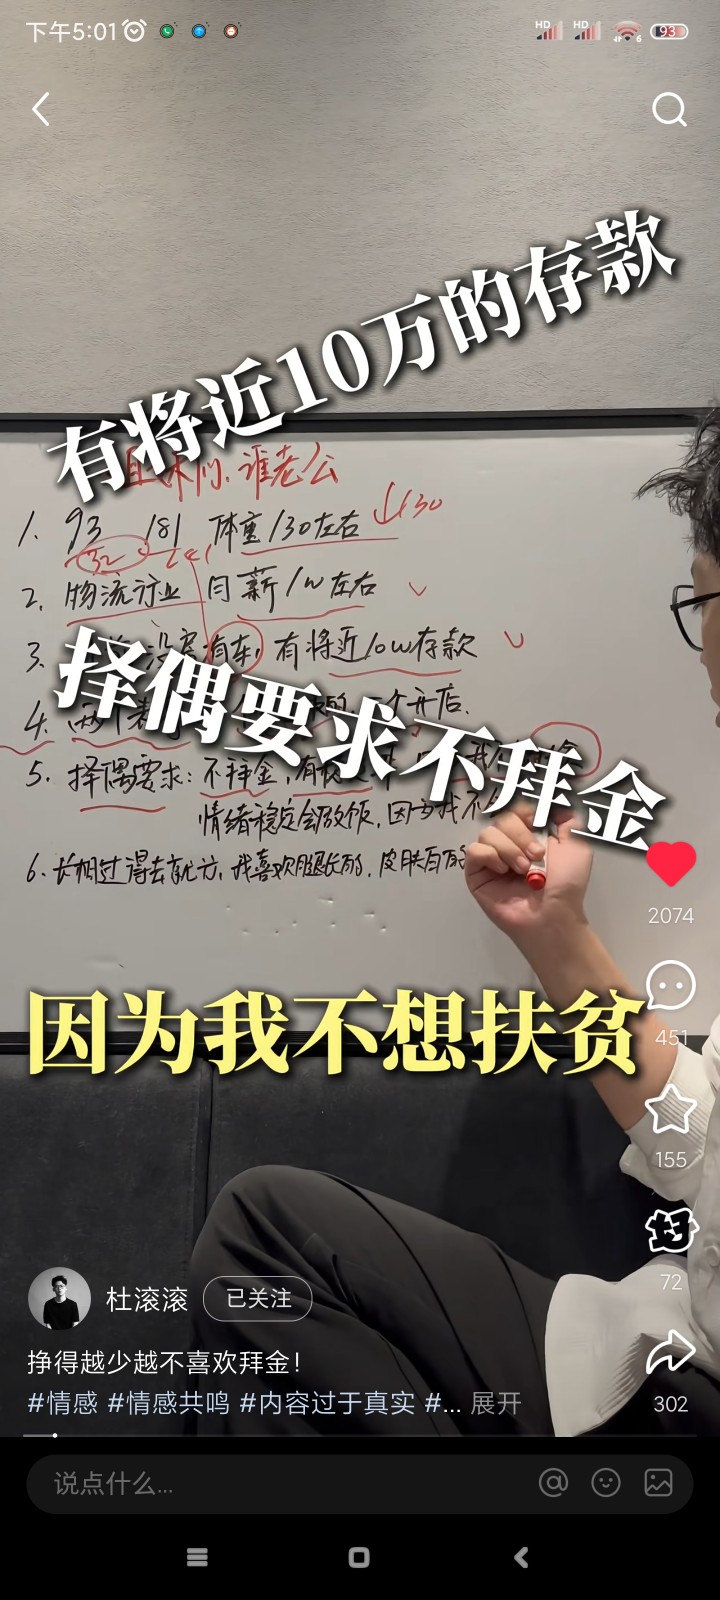 下午5:01
HD
HD
6
93
有将近10万的存款
谁老公
1. 93 181 体重130左右 130
32
2. 物流行业 月薪1w左右
3. 有车, 有将近10w存款
择偶要求不拜金
4. 两个 个开店.
5. 择偶要求: 不拜金, 有
情绪稳定会做饭, 因为我不
6. 长相过得去就行, 我喜欢腿长的, 皮肤白的
2074
因为我不想扶贫
451
155
72
杜滚滚
已关注
挣得越少越不喜欢拜金！
#情感 #情感共鸣 #内容过于真实 #... 展开
302
说点什么...